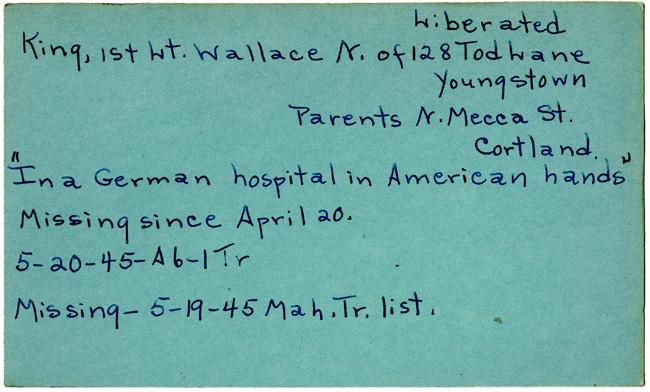 Liberated
King, 1st Lt. Wallace N. of 128 Tod Lane
Youngstown
Parents N. Mecca St.
Cortland.
"In a German hospital in American hands"
Missing since April 20.
5-20-45-A6-1 Tr
Missing- 5-19-45 Mah. Tr. list.